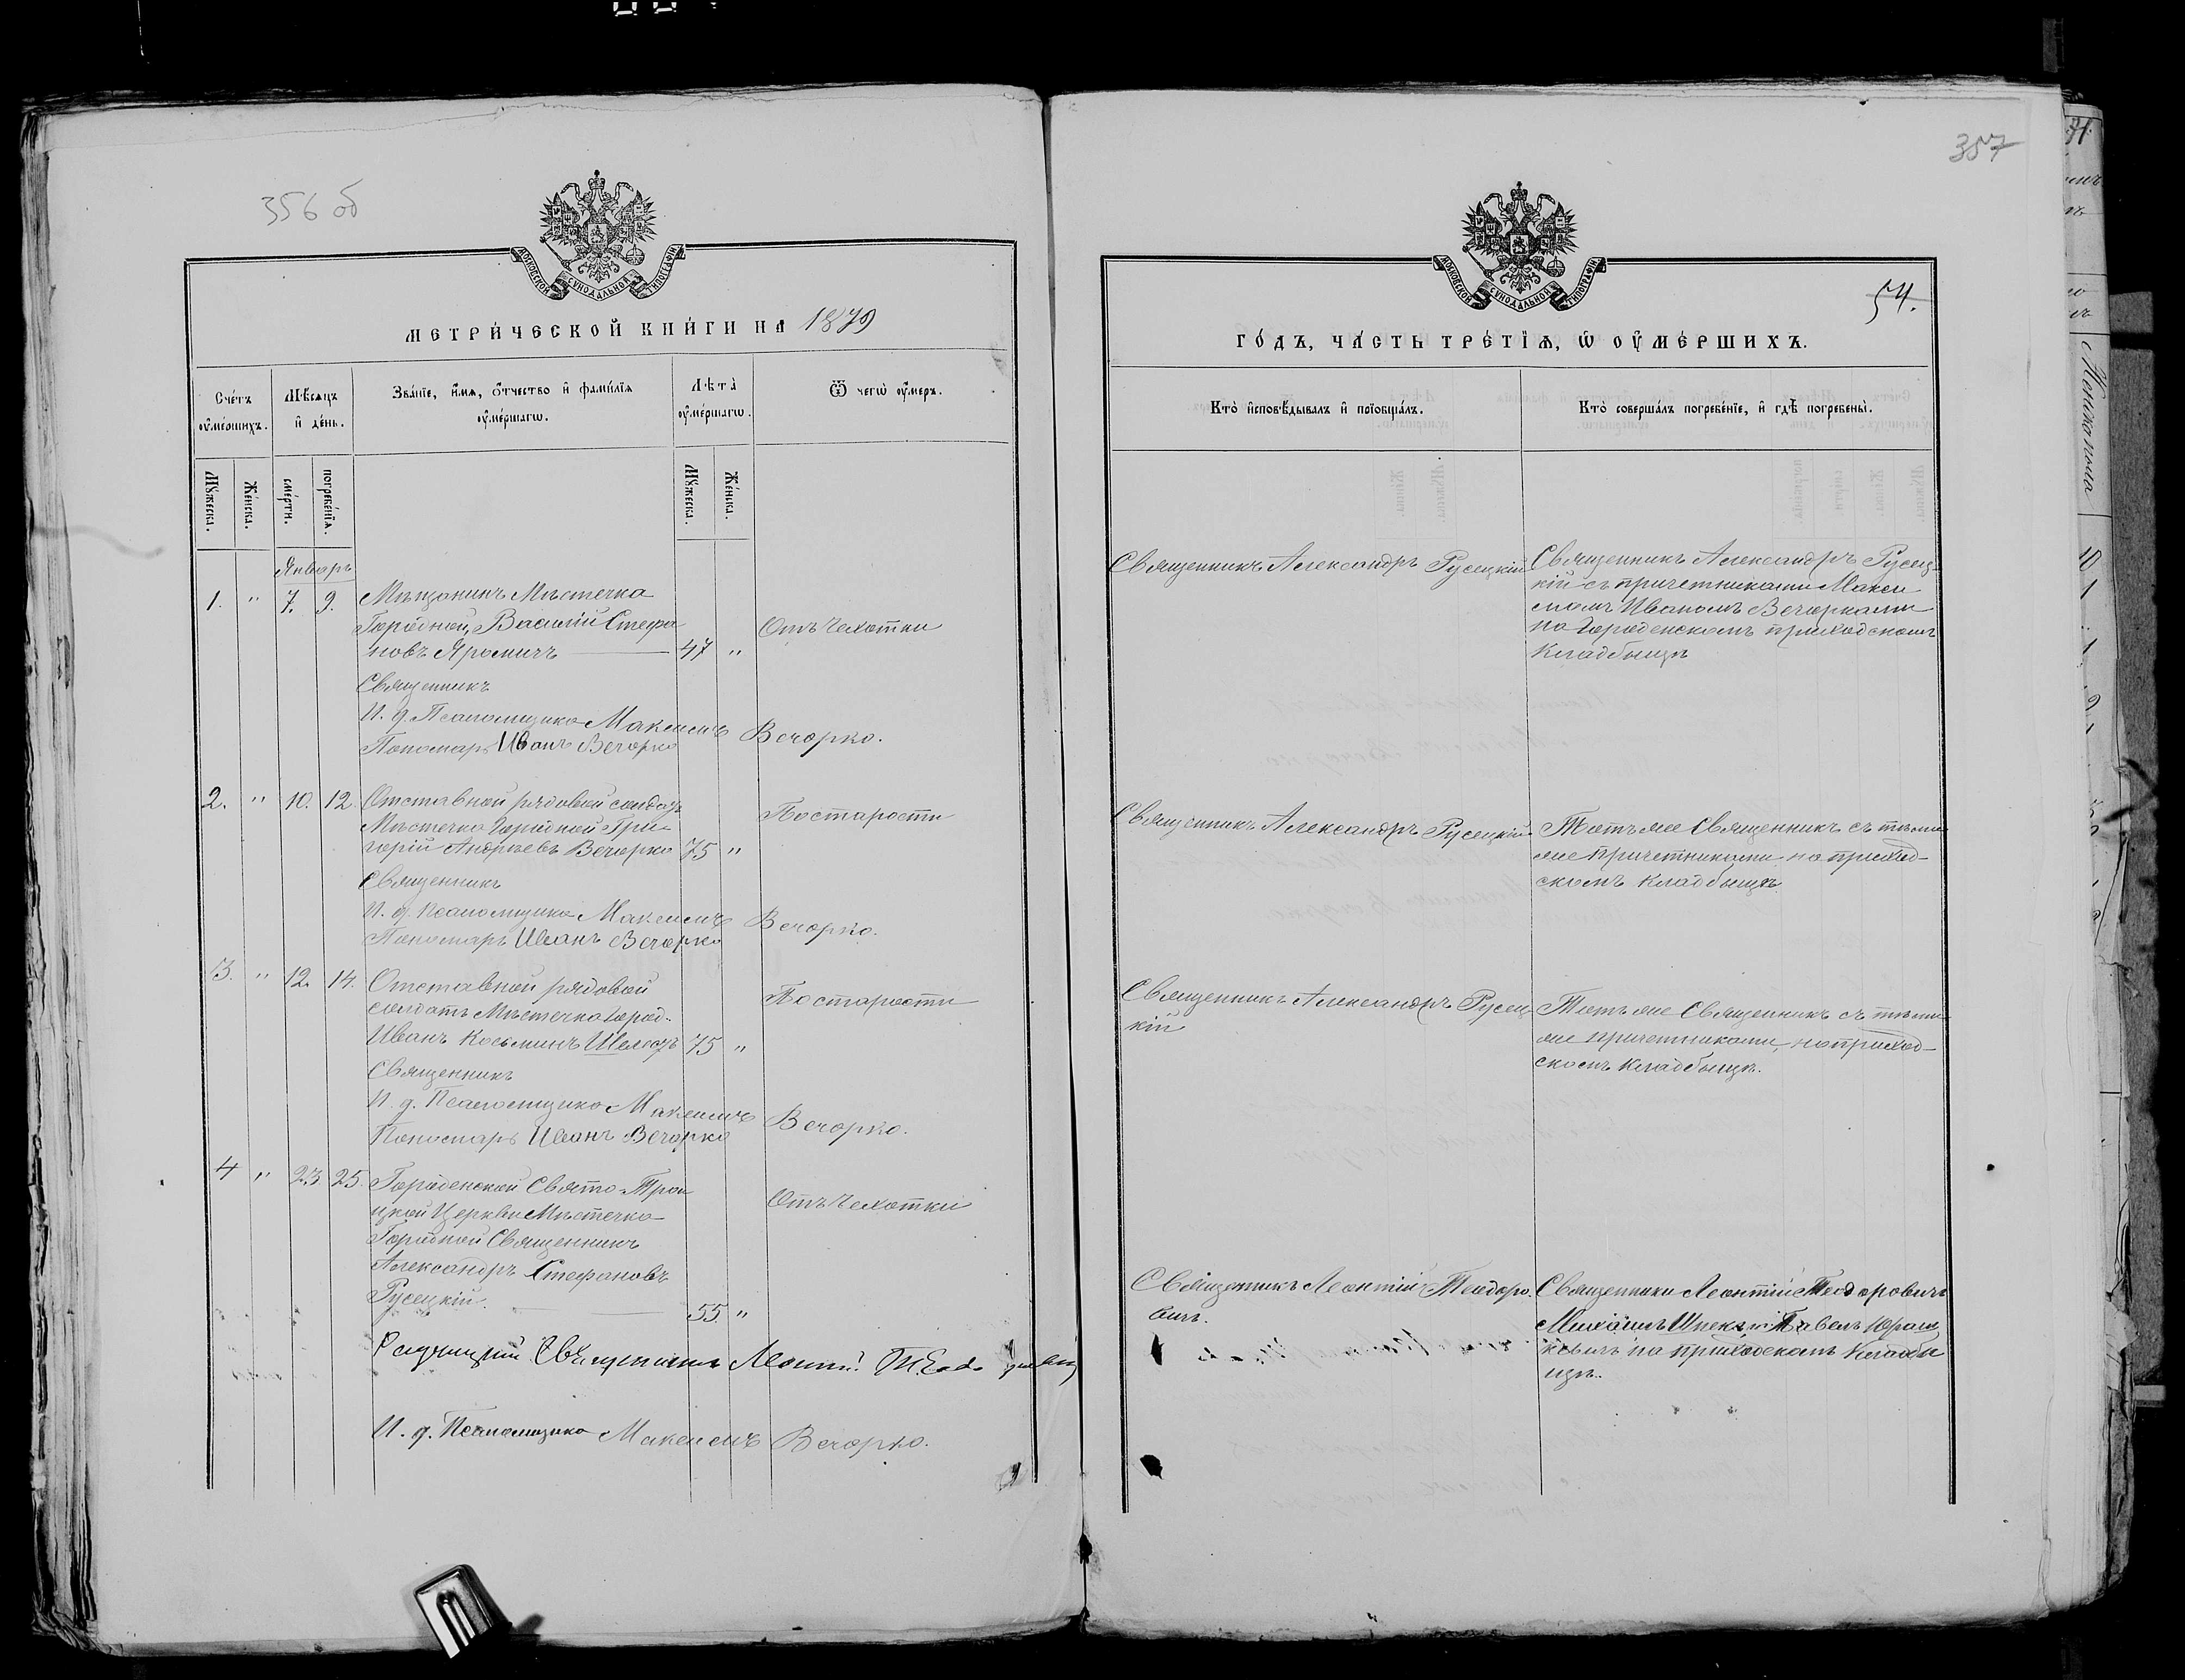 356 об
МОСКОВСКОЙ СѴНОДАЛЬНОЙ ТИПОГРАФІИ
МЕТРИ́ЧЕСКОЙ КНИ́ГИ НА 1879
Сче́тъ оу҆ме́ршихъ.
Мѣ́сяцъ и҆ де́нь.
Зва́нїе, и҆́мѧ, ѻ҆́тчество и҆ фами́лїѧ оу҆ме́ршагѡ.
Лѣта̀ оу҆ме́ршагѡ.
Ѿ чегѡ̀ оу҆́меръ.
Мꙋ́жеска.
Же́нска.
сме́рти.
погребе́нїѧ.
Мꙋ́жеска.
Же́нска.
Январь
1. " 7. 9. Мѣщанинъ Мѣстечка
Городной, Василій Стефа
новъ Яромичъ 47 " Отъ Чехотки
Священникъ
И. д. Псаломщика Максимъ Вечорко.
Пономарь Иванъ Вечорко
2. " 10. 12. Отставной рядовой солдатъ
Мѣстечка Городной Гри-
горій Андреевъ Вечорко 75 " По старости
Священникъ
И. д. Псаломщика Максимъ Вечорко.
Пономарь Иванъ Вечорко
3. " 12. 14. Отставной рядовой
солдатъ Мѣстечка Город.
Иванъ Косьминъ 75 " По старости
Священникъ
И. д. Псаломщика Максимъ Вечорко.
Пономарь Иванъ Вечорко
4 " 23 25. Городенской Свято-Трои
цкой Церкви Мѣстечка
Городной Священникъ
Александръ Стефановъ
Русецкій. 55 " Отъ Чехотки
Священникъ Леонтій
И. д. Псаломщика Максимъ Вечорко.
357
МОСКОВСКОЙ СѴНОДАЛЬНОЙ ТИПОГРАФІИ
54.
ГО́ДЪ, ЧА́СТЬ ТРЕ́ТЇѦ, Ѡ҆ ОУ҆МЕ́РШИХЪ.
Кто̀ и҆сповѣ́дывалъ и҆ прїѡбща́лъ.
Кто̀ соверша́лъ погребе́нїе, и҆ гдѣ̀ погребены̀.
Священникъ Александръ Русецкій
Священникъ Александръ Русец-
кій съ причетниками Макси
момъ Иваномъ Вечорками
на Городенскомъ приходскомъ
Кладбищѣ
Священникъ Александръ Русецкій
Тотъ же Священникъ съ тѣми
же причетниками на приход-
скомъ кладбищѣ
Священникъ Александръ Русец
кій
Тотъ же Священникъ съ тѣми
же причетниками, на приход-
скомъ кладбищѣ.
Священникъ Леонтій Теодоро
вичъ.
Священники Леонтій Теодоровичъ
Михаилъ Павелъ Юраш
кевичъ на приходскомъ Кладби
щѣ.
Женска пола